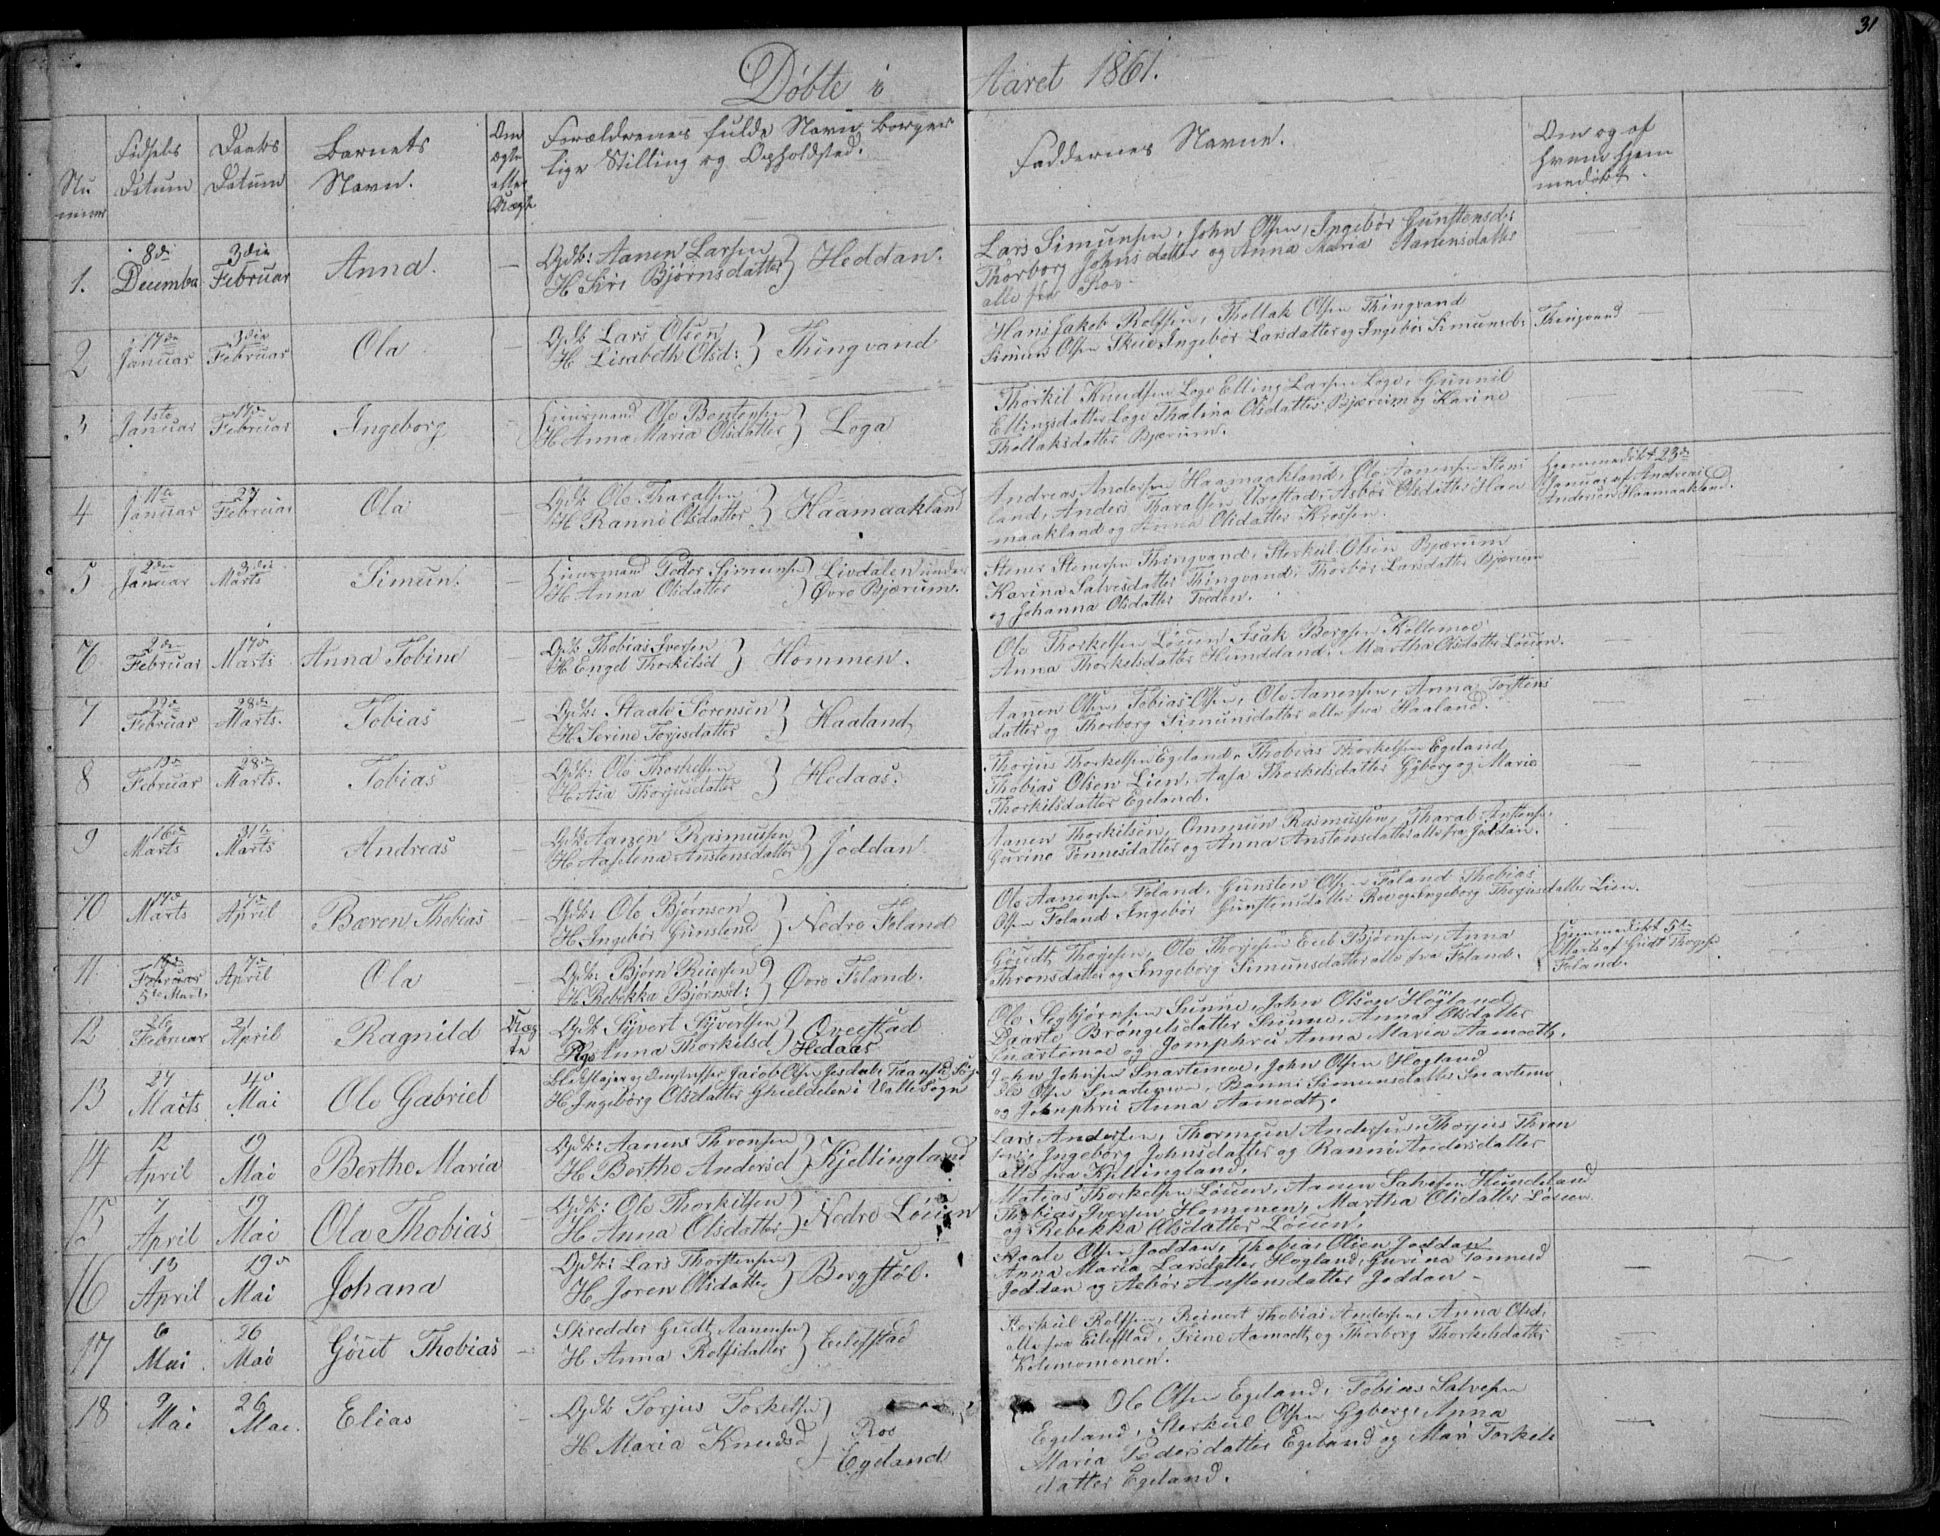 31
Døbte i Aaret 1861.
Nummer
Fødsels Datum
Daabs Datum
Barnets Navn.
Om ægte eller Uægte
Forældrenes fulde Navn, borgerlige Stilling og Opholdsted.
Faddernes Navne.
Om og af hvem hjemmedøbt.
1. 8de December 3die Februar Anna. — Gdb: Aanen Larsen
H Siri Bjørnsdatter } Heddan.
Lars Simunsen, John Olsen, Ingebør Gunstensd:
Thorborg Johnsdatter og Anna Maria Aanensdatter
alle fra Roe
2 17de Januar 3die Februar Ola — Gdb Lars Olsen
H Lisabeth Olsd: } Thingvand
Hans Jakob Rolfsen, Thollak Olsen Thingvand
Simun Olsen Skeie Ingebør Larsdatter og Ingebør Simunsd: Thingvand
3 1ste Januar 17de Februar Ingeborg Huusmand Ole Bentensen
H Anna Maria Olsdatter } Loga
Thorkil Knudsen Loge Elling Larsen Loge, Gunnil
Ellingsdatter Loge Thalina Olsdatter Bjærum og Karine
Thollaksdatter Bjærum.
4 11te Januar 27 Februar Ola — Gdb Ole Tharalsen
H Ranni Olsdatter } Haamaakland
Andreas Andersen Haamaakland, Ole Aanensen Stens
land, Anders Tharalsen Urestad, Asbør Olsdatter Haa
maakland og Anna Olsdatter Krossen.
Hjemmedøbt 23de
Januar af Andreas
Andersen Haamaakland.
5 2den Januar 3die Marts Simun. — Huusmand Peder Simunsen
H Anna Olsdatter } Livdalen under
Øvre Bjærum.
Stener Stenersen Thingvand, Storkul Olsen Bjærum
Karina Salvesdatter Thingvand, Thorbør Larsdatter Bjærum
og Johanna Olsdatter Tveden.
6 2den Februar 17de Marts Anna Tobine — Gdb Thobias Iversen
H Engel Thorkilsd } Hommen.
Ole Thorkelsen Løuen, Isak Bergsen Keltemoe
Anna Thorkelsdatter Hunddland, Martha Olsdatter Løuen.
7 22de Februar 28de Marts. Tobias — Gdb: Staale Sørensen
H Serine Torjusdatter } Haaland
Aanen Olsen, Tobias Olsen, Ole Aanensen, Anna Torstens
datter og Thorborg Simunsdatter alle fra Haaland.
8 Februar 28de Marts. Tobias — Gdb: Ole Thorkelsen
H Asa Thorjusdatter } Hedaas.
Thorjus Thorkelsen Egeland, Thobias Thorkelsen Egeland
Thobias Olsen Lien, Aasa Thorkelsdatter Gyberg og Maria
Thorkilsdatter Egeland.
9 16de Marts 31te Marts Andreas — Gdb Aanen Rasmussen
H Aaslena Anstensdatter } Joddan
Aanen Thorkilsen, Ommun Rasmussen, Tharal Anstensen,
Gurine Tønnesdatter og Anna Anstensdatter alle fra Joddan.
10 17de Marts 7de April Bæren Thobias — Gdb: Ole Bjørnsen
H. Ingebør Gunstensd } Nedre Foland
Ole Aanensen Foland, Gunsten Olsen Foland Thobias
Olsen Foland Ingebør Gunstensdatter Roe og Ingeborg Thorjusdatter Lien.
11 Februar
5te Marts 7de April Ola — Gdb: Bjørn Reiersen
H Rebekka Bjørnsd: } Øvre Foland.
Guudt Thorjesen, Ole Thorjesen Eiel Bjørnsen, Anna
Thronsdatter og Ingeborg Simunsdatter alle fra Foland.
Hjemmedøbt 5te
Marts af Gudt Thorjesen
Foland.
12 26 Februar 21 April Ragnild Uæg
te Gdb Syvert Syvertsen
Pige Anna Thorkilsd } Øveestad
Hedaas
Ole Segbjørnsen Sunne, John Olsen Høgland
Daarte Brøngelsdatter Sunne, Anna Olsdatter
Snartemoe og Jomphru Anna Maria Aamodt.
13 27 Marts 4de Mai Ole Gabriel Jacob Olsen
H. Ingeborg Olsdatter i Valle Sogn
John Johnsen Snartemoe, John Olsen Høgland
Ole Olsen Snartemoe, Ranni Simunsdatter Snartemo
og Jomphru Anna Aamodt.
14 12 April 19 Mai Berthe Maria — Gdb: Aanen Thronsen
H Berthe Andersd } Kjellingland
Lars Andersen, Thormun Andersen, Thorjus Thron
sen, Ingeborg Johnsdatter og Ranni Andersdatter
alle fra Kjellingland.
15 7 April 19 Mai Ola Thobias — Gdb: Ole Thorkilsen
H Anna Olsdatter } Nedre Løuen
Matias Thorkelsen Løuen, Aanen Salvesen Hundeland
Thobias Iversen Hommen, Martha Olsdatter Løuen
og Rebekka Olsdatter Løuen.
16 13 April 19de Mai Johana Gdb: Lars Thorstensen
H Joren Olsdatter } Bergstøl.
Staale Olsen Joddan, Thobias Olsen Joddan
Anna Maria Larsdatter Høgland, Gurina Tønnesd
Joddan og Asbør Anstensdatter Joddan
17 6 Mai 26 Mai Gøut Thobias — Skredder Gudt Aanensen
H. Anna Rolfsdatter } Eielefstad
Storkul Rolfsen, Reinert Thobias Andersen, Anna Olsd,
alle fra Eilefstad, Trine Aamodt og Thorborg Thorkelsdatter
Kolemomonen.
18 9 Mai 26 Mai. Elias — Gdb Torjus Torkelsen
H Maria Knudsd } Roe
Egeland
Ole Olsen Egeland, Tobias Salvesen
Egeland, Storkul Olsen Gyberg, Anna
Maria Pedersdatter Egeland og Mari Torkels
datter Egeland.